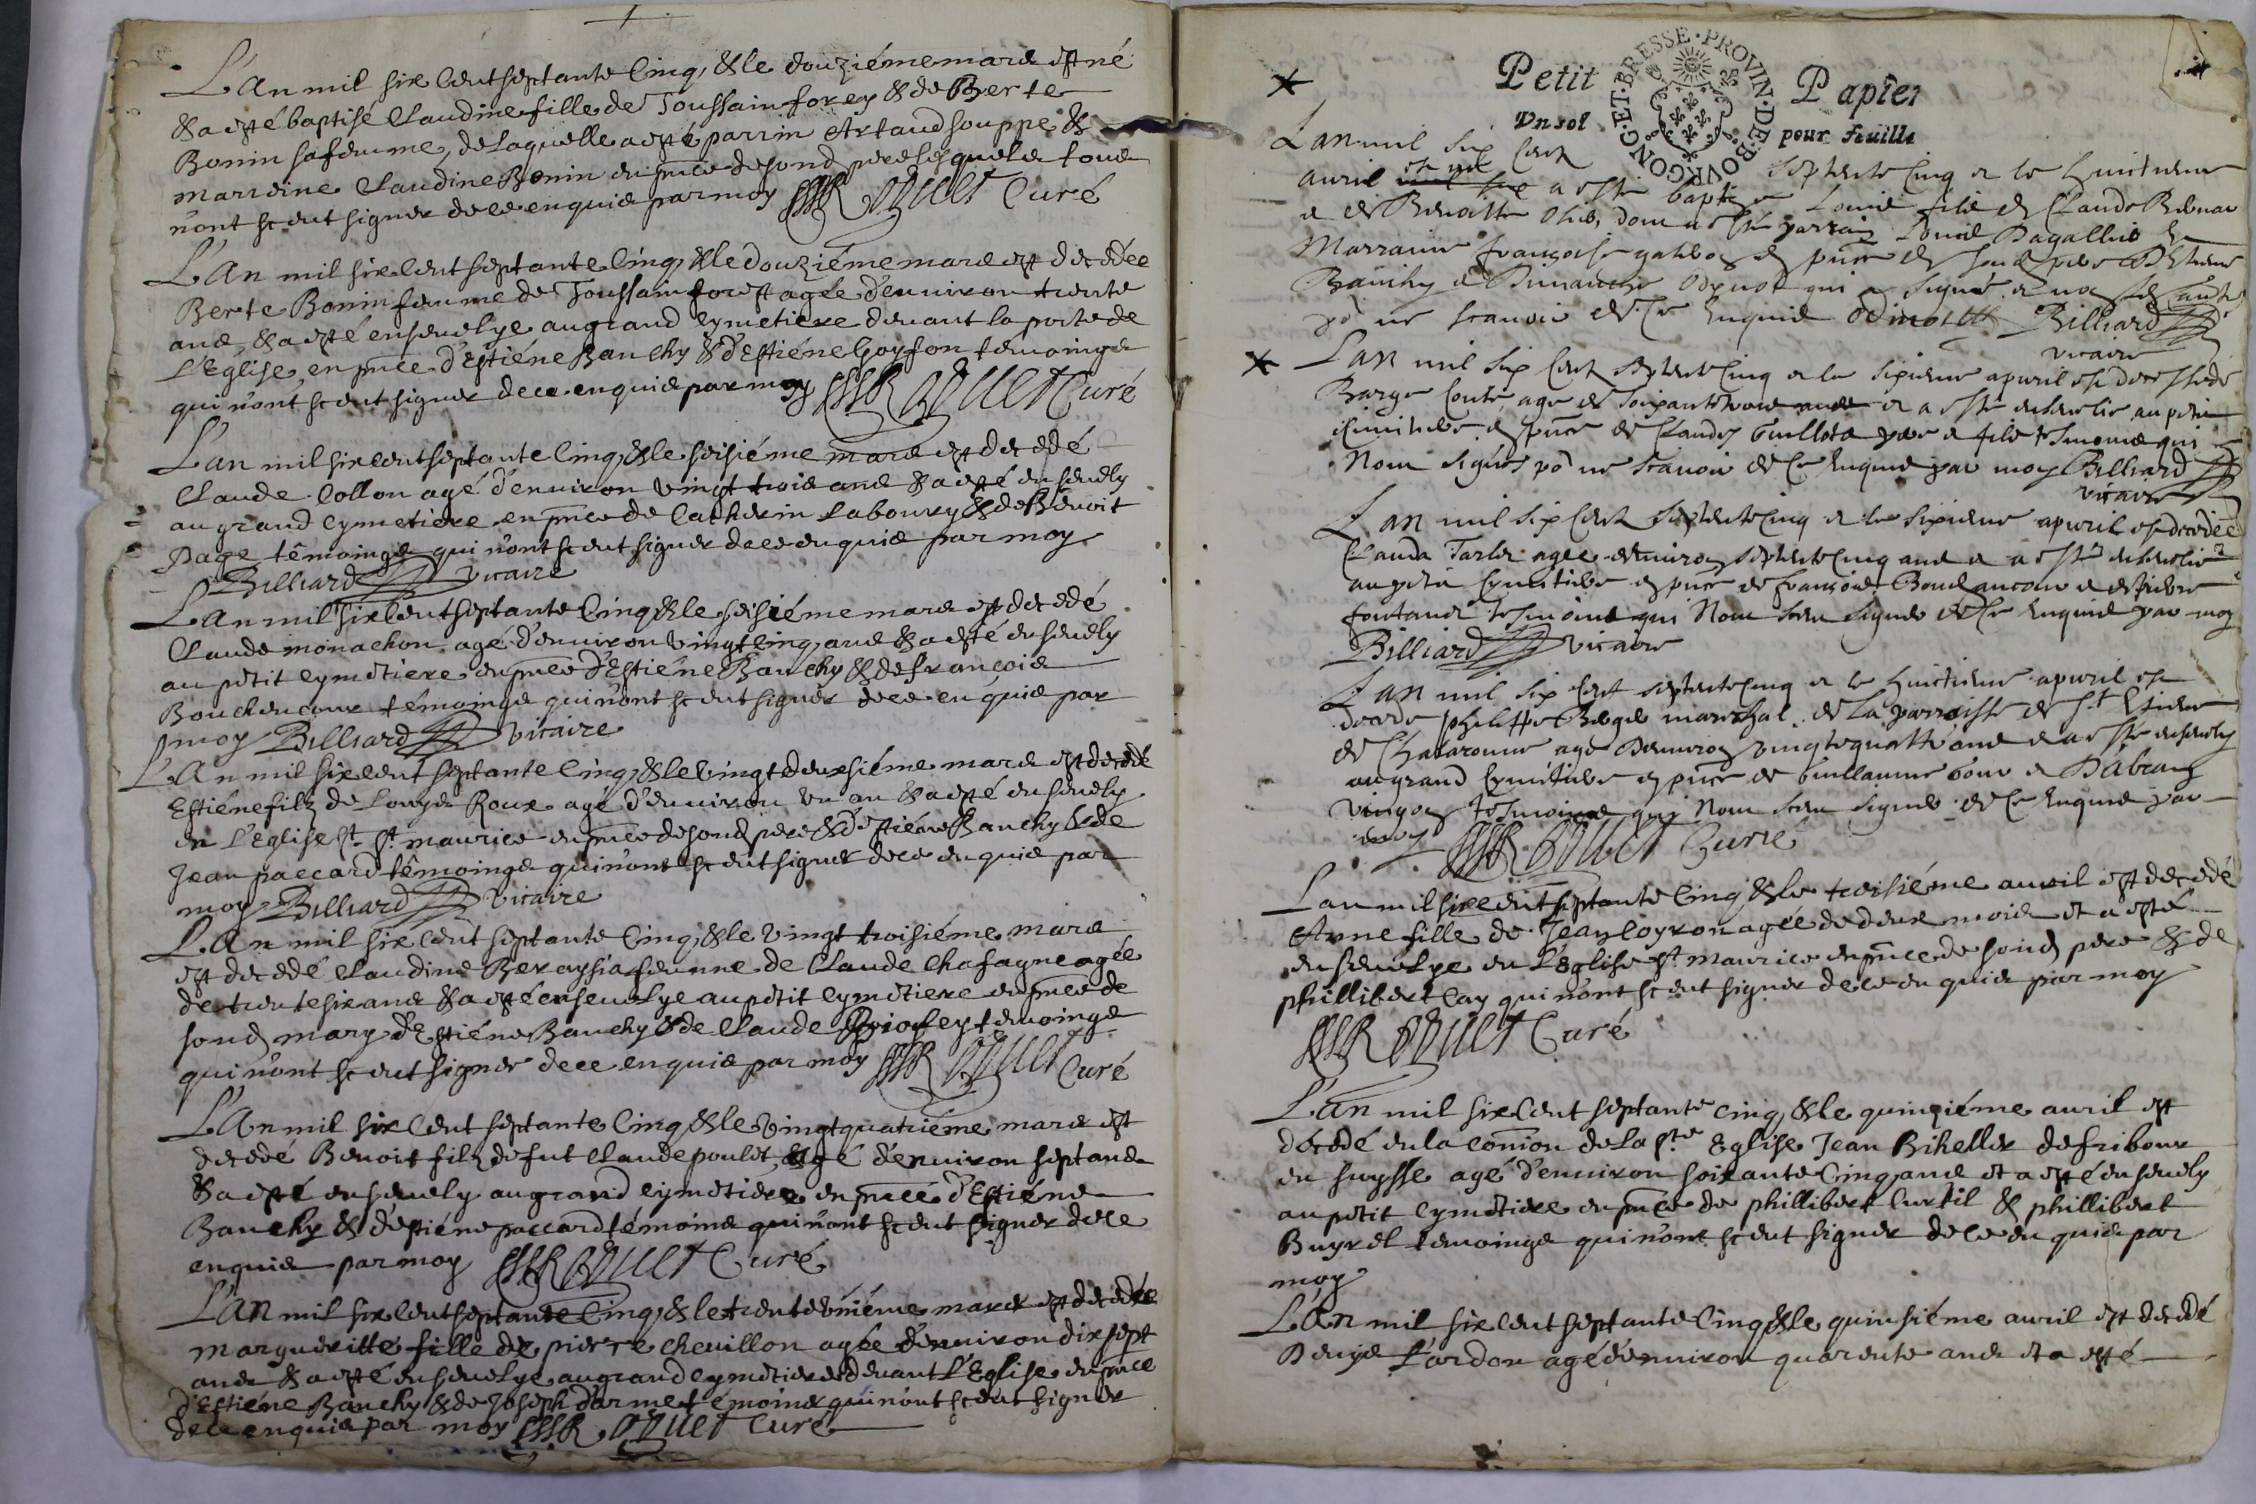 L'An mil six Cent septante Cinq, & le douziéme mars est né
& a esté baptisé Claudine fille de Toussain forey & de Berte
Bonin sa femme, de laquelle a esté parrin Artaud souppe &
marreine Claudine Bonin en pnce de sond pere lesquels tous
n'ont sceut signer de ce enquis par moy Curé
L'An mil six Cent septante Cinq, & le douziéme mars est decedée
Berte Bonin femme de Toussain forest agée d'environ trente
ans, & a esté ensevelye au grand Cymetiere devant la porte de
L'Eglise, en pnce d'Estiéne Bauchy & d'Estiéne Goyffon témoings
qui n'ont sceut signer de ce enquis par moy Curé
L'an mil six cent septante Cinq, & le seisiéme mars est decedé
Claude Collon agé d'environ vingt trois ans & a esté ensevely
au grand Cymetiere en pnce de Catherin Laboury & de Benoit
Page témoings qui n'ont sceut signer de ce enquis par moy
Billiard vicaire
L'An mil six Cent septante Cinq & le seisiéme mars est decedé
Claude monachon agé d'environ vingt Cinq ans & a esté ensevely
au petit Cymetiere en pnce d'Estiéne Bauchy & de françois
Bouchencour témoings qui n'ont sceut signer de ce enquis par
moy Billiard vicaire
L'An mil six Cent septante Cinq, & le vingt deuxsiéme mars est decedé
Estiéne filz de Louys Roux agé d'environ un an & a esté ensevely
en L'Eglise St maurice en pnce de sond pere & d'Estiéne Bauchy & de
Jean paccard témoings qui n'ont sceut signer de ce enquis par
moy Billiard vicaire
L'An mil six Cent septante Cinq, & le vingt troisiéme mars
est decedé Claudine Beraysia femme de Claude Chafagne agée
de trente six ans & a esté ensevelye au petit Cymetiere en pnce de
sond mary d'Estiéne Bauchy & de Claude temoings
qui n'ont sceut signer de ce enquis par moy Curé
L'An mil six Cent septante Cinq, & le vingt quatriéme mars est
decedé Benoit filz de fut Claude poulet, agé d'environ sept ans
& a esté ensevely au grand Cymetiere en pnce d'Estiéne
Bauchy & d'estiéne paccard témoins qui n'ont sceut signer de ce
enquis par moy Curé
L'An mil six Cent septante Cinq, & le trente uniéme mars est decedée
margueritte fille de pierre Chevillon agée d'environ dix sept
ans & a esté ensevelye au grand Cymetiere devant L'Eglise en pnce
d'Estiéne Bauchy & de Joseph darme témoins qui n'ont sceut signer
de ce enquis par moy Curé
Petit Papier
Un sol pour feuille
BOVRGONG·ET·BRESSE·PROVIN·DE
Lan mil six Cent septente Cinq et le huictieme
avril est né a esté baptizé Louis fils de Claude
et de Benoitte dont a esté parrain Louis Pagallet
Marraine françoise en pnce de sond pere
Bauchy qui a signé et non les autres
po ne scavoir de ce enquis Odinot Billiard
vicaire
Lan mil six Cent septente Cinq et le sixieme apvril est decedé
Barge agé de soixante ans et a esté ensevelie au petit
cimitiere en pnce de Claude Guillot pere et fils tesmoins qui
nont signés po ne scavoir de ce enquis par moy Billiard
vicaire
Lan mil six Cent septente Cinq et le sixieme apvril est decedée
Clauda agee environ septente Cinq ans et a esté ensevelie
au petit Cymitiere en pnce de françois et de pierre
fontanel tesmoins qui nont sceu signer de ce enquis par moy
Billiard vicaire
Lan mil six Cent septente Cinq et le huictieme apvril est
decede philippe mareschal de la parroisse de St Estiene
de Chalaronne agé denviron vingt quattre ans et a esté ensevely
au grand Cymitiere en pnce de Guillaume et
tesmoins qui nont sceu signer de ce enquis par
moy Curé
Lan mil six Cent septante Cinq & le troisiéme avril est decedé
Anne fille de Jean loyron agée de deux mois et a esté
ensevelye en L'Eglise St maurice en pnce de sond pere & de
phillibert Cay qui n'ont sceut signer de ce enquis par moy
Curé
L'an mil six Cent septante cinq, & le quinziéme avril est
décedé en la comion de la Ste Eglise Jean Biheller de fribour
en suysse agé d'environ soixante Cinq ans et a esté ensevely
au petit Cymetiere en pnce de phillibert Curtil & phillibert
Buyret temoings qui n'ont sceut signer de ce enquis par
moy
L'An mil six Cent septante Cinq & le quinsiéme avril est decedé
Denys Lardon agé d'environ quarente ans et a esté